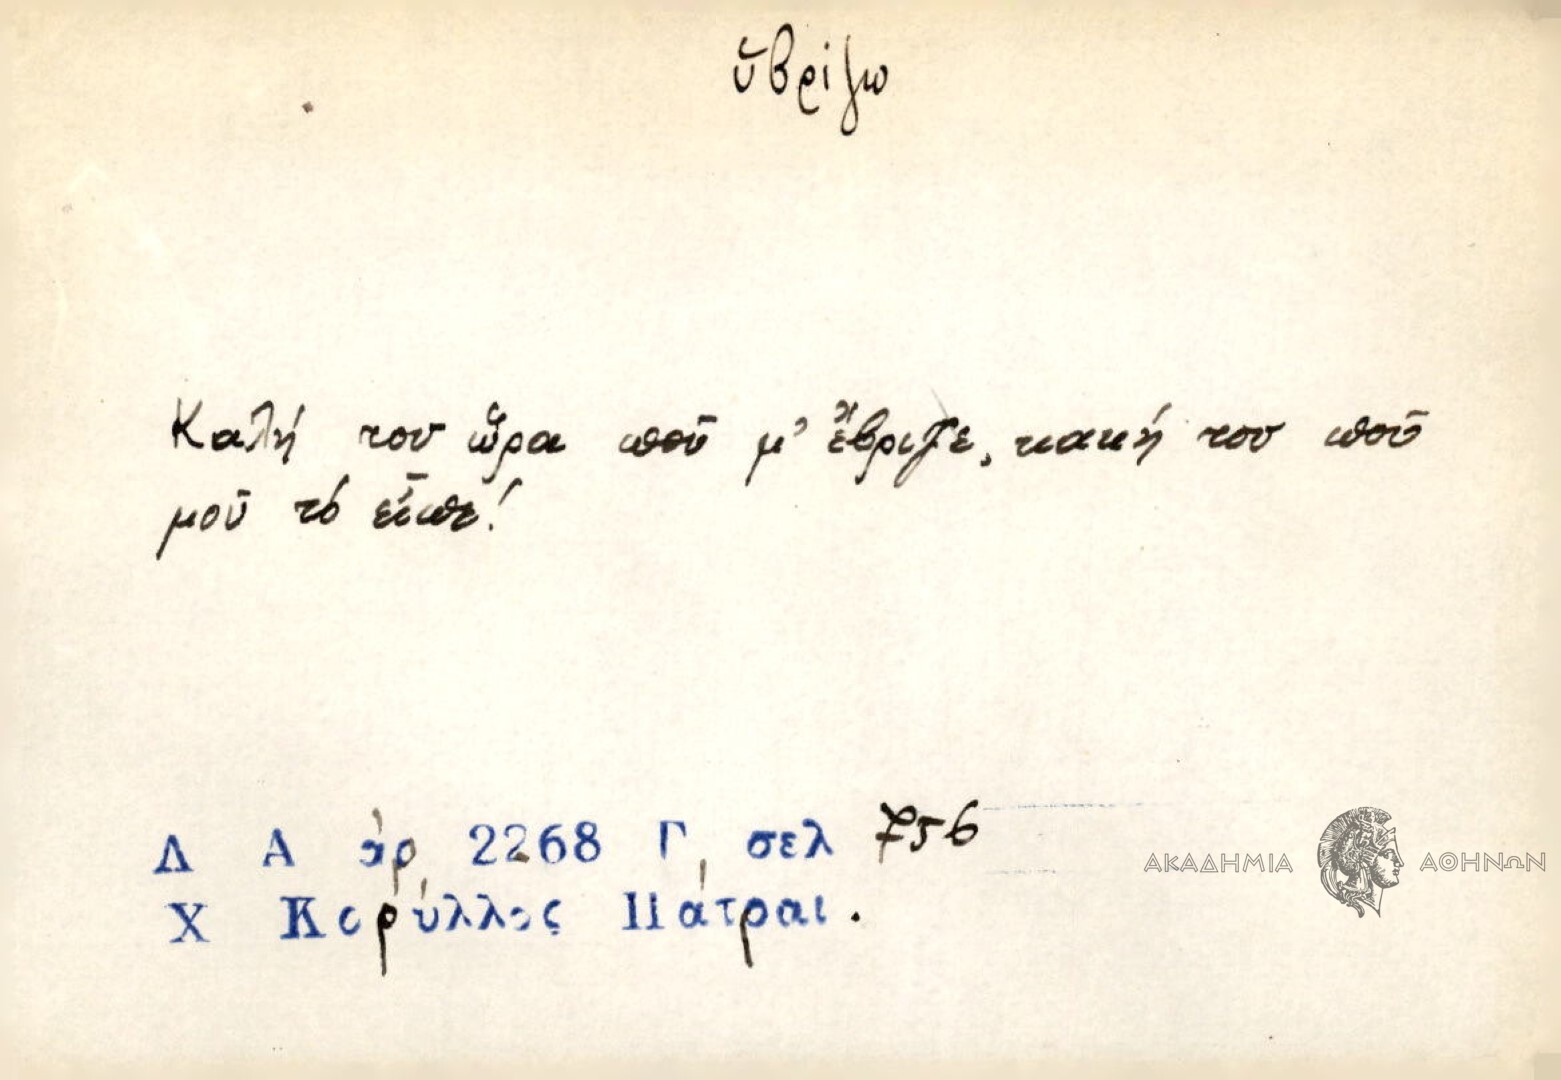 ὑβρίζω
Καλή του ὥρα ποῦ μ' ἔβριζε, κακή του ποῦ
μοῦ τό εἶπε!
Λ Α ἀρ 2268 Γ, σελ 756
Χ Κορύλλος Πάτραι.
ΑΚΑΔΗΜΙΑ ΑΘΗΝΩΝ